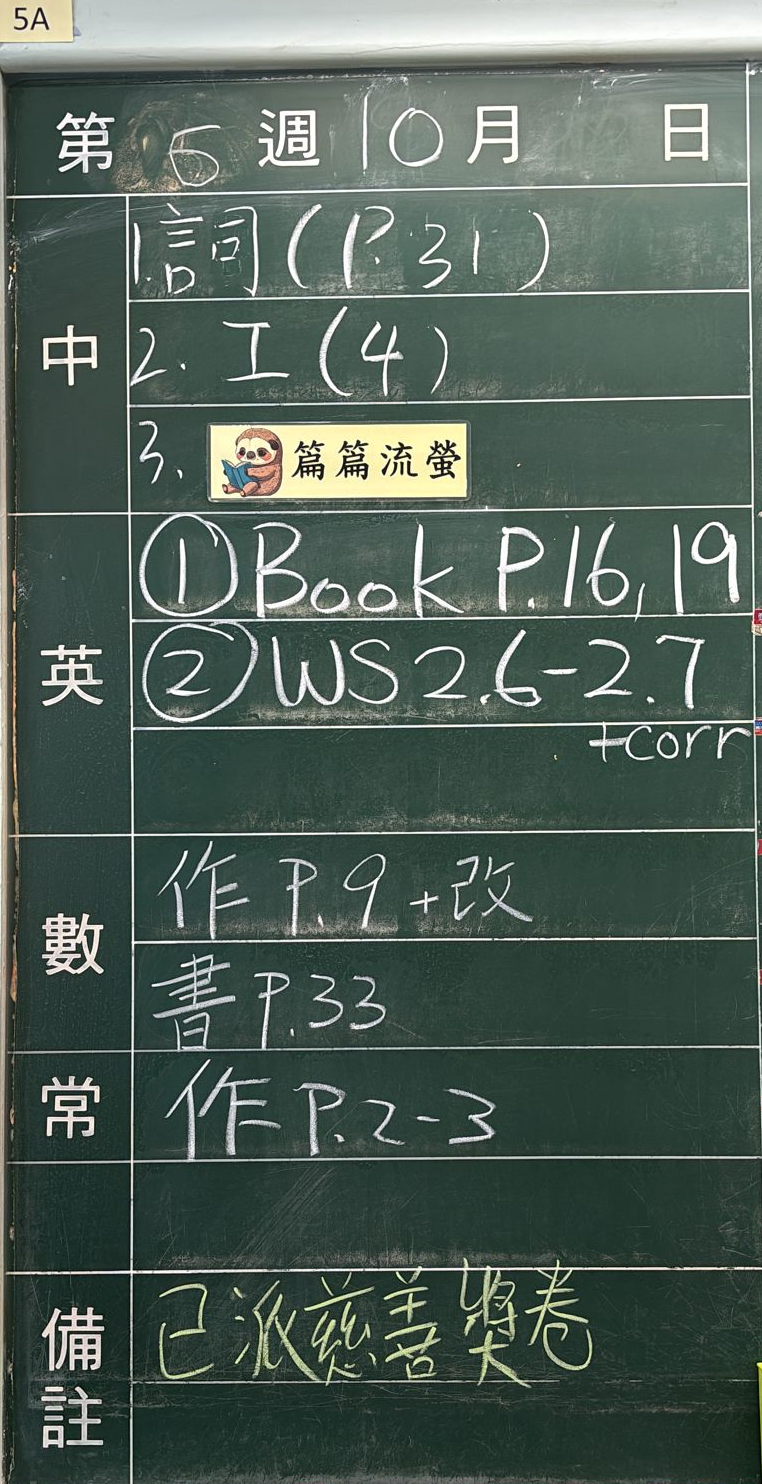 5A
第5週10月 日
中
1.詞(P.31)
2.工(4)
3.篇篇流螢
英
①Book P.16,19
②WS 2.6-2.7
+corr
數
作 P.9 +改
書 P.33
常
作 P.2-3
備註
已派慈善獎卷